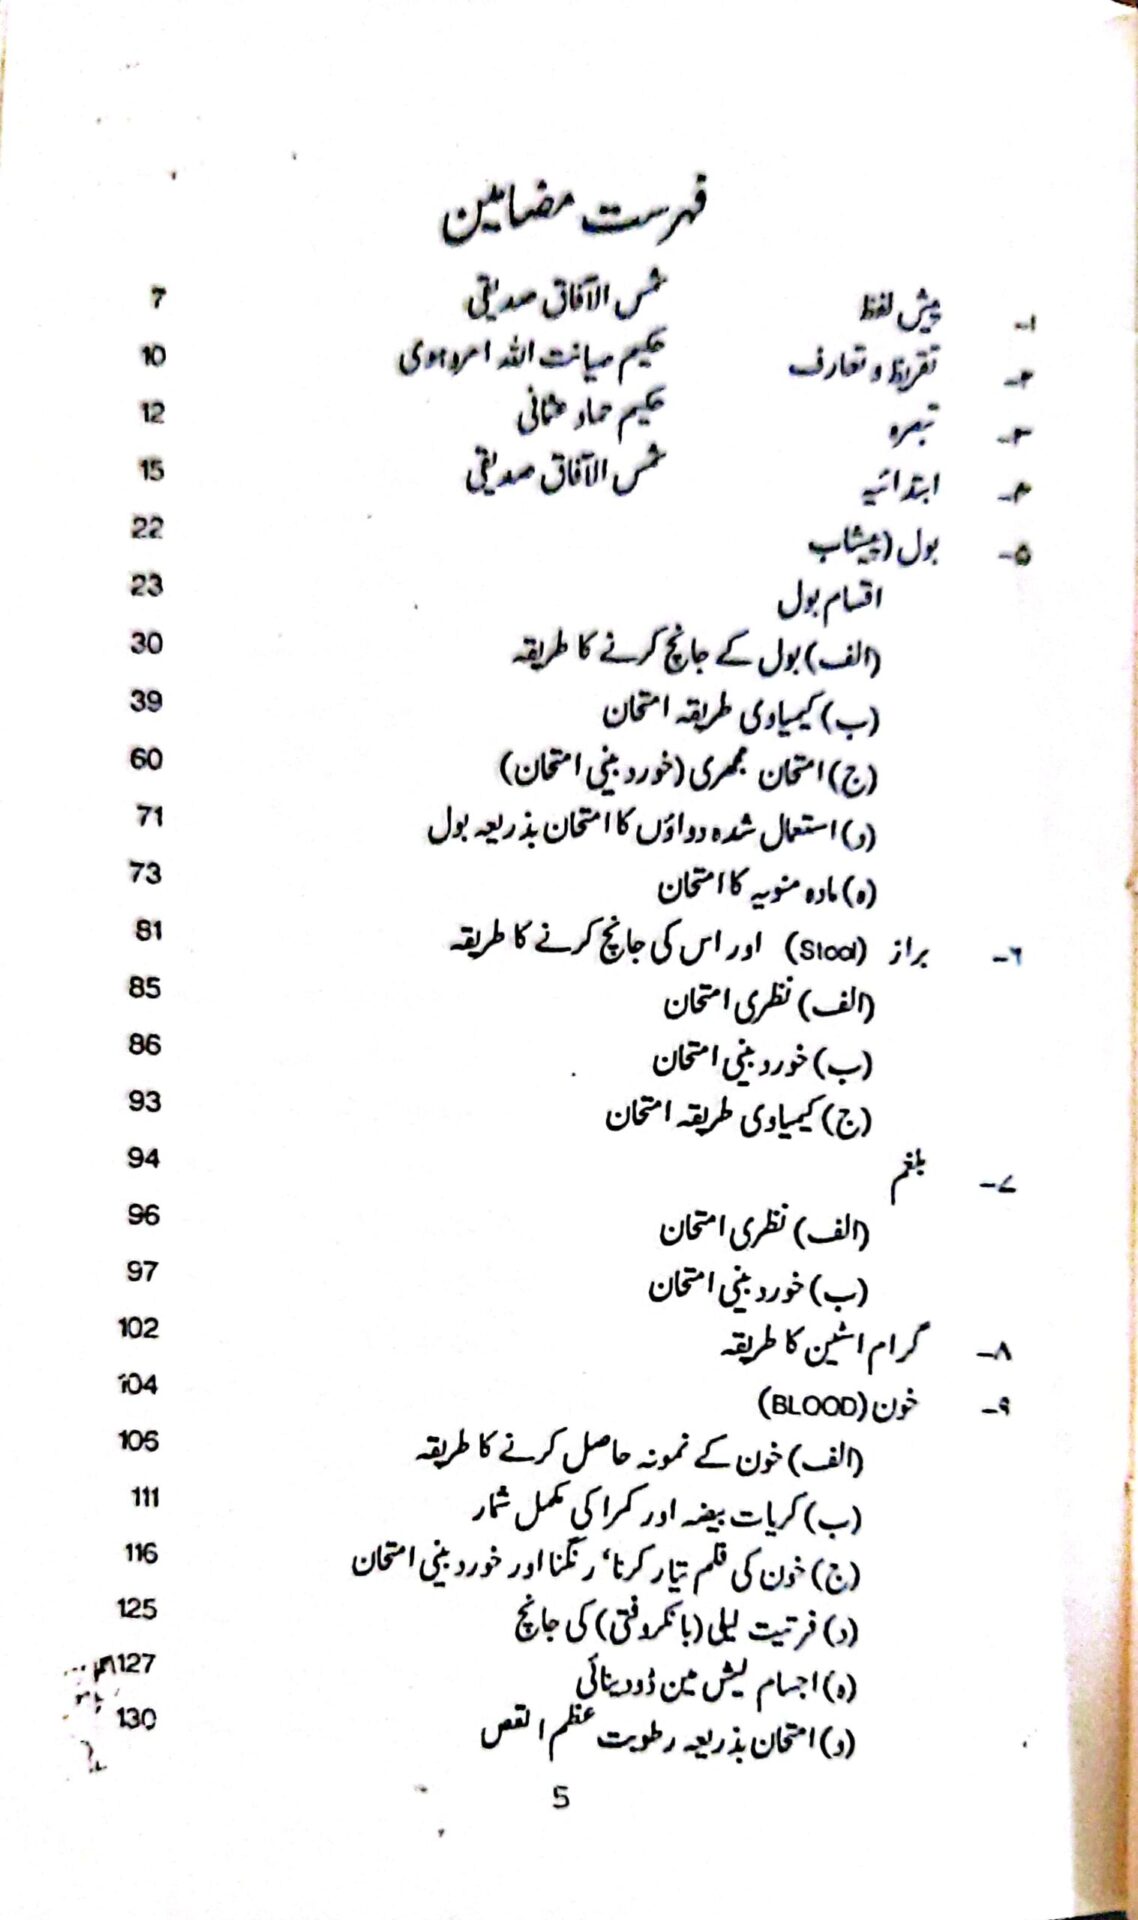 فہرست مضامین
۱- پیش لفظ شمس الآفاق صدیقی 7
۲- تقریظ و تعارف حکیم صیانت اللہ امروہوی 10
۳- تبصرہ حکیم حماد عثمانی 12
۴- ابتدائیہ شمس الآفاق صدیقی 15
۵- بول (پیشاب 22
اقسام بول 23
(الف) بول کے جانچ کرنے کا طریقہ 30
(ب) کیمیاوی طریقہ امتحان 39
(ج) امتحان مجہری (خوردبینی امتحان) 60
(د) استعمال شدہ دواؤں کا امتحان بذریعہ بول 71
(ہ) مادہ منویہ کا امتحان 73
۶- براز (Stool) اور اس کی جانچ کرنے کا طریقہ 81
(الف) نظری امتحان 85
(ب) خوردبینی امتحان 86
(ج) کیمیاوی طریقہ امتحان 93
۷- بلغم 94
(الف) نظری امتحان 96
(ب) خوردبینی امتحان 97
۸- گرام اسٹین کا طریقہ 102
۹- خون (BLOOD) 104
(الف) خون کے نمونہ حاصل کرنے کا طریقہ 105
(ب) کریات بیضہ اور کمرا کی مکمل شمار 111
(ج) خون کی فلم تیار کرنا، رنگنا اور خوردبینی امتحان 116
(د) فرتیت لیلی (بانکروفتی) کی جانچ 125
(ہ) اجسام لیش مین ڈودینائی 127
(و) امتحان بذریعہ رطوبت عظم القص 130
5